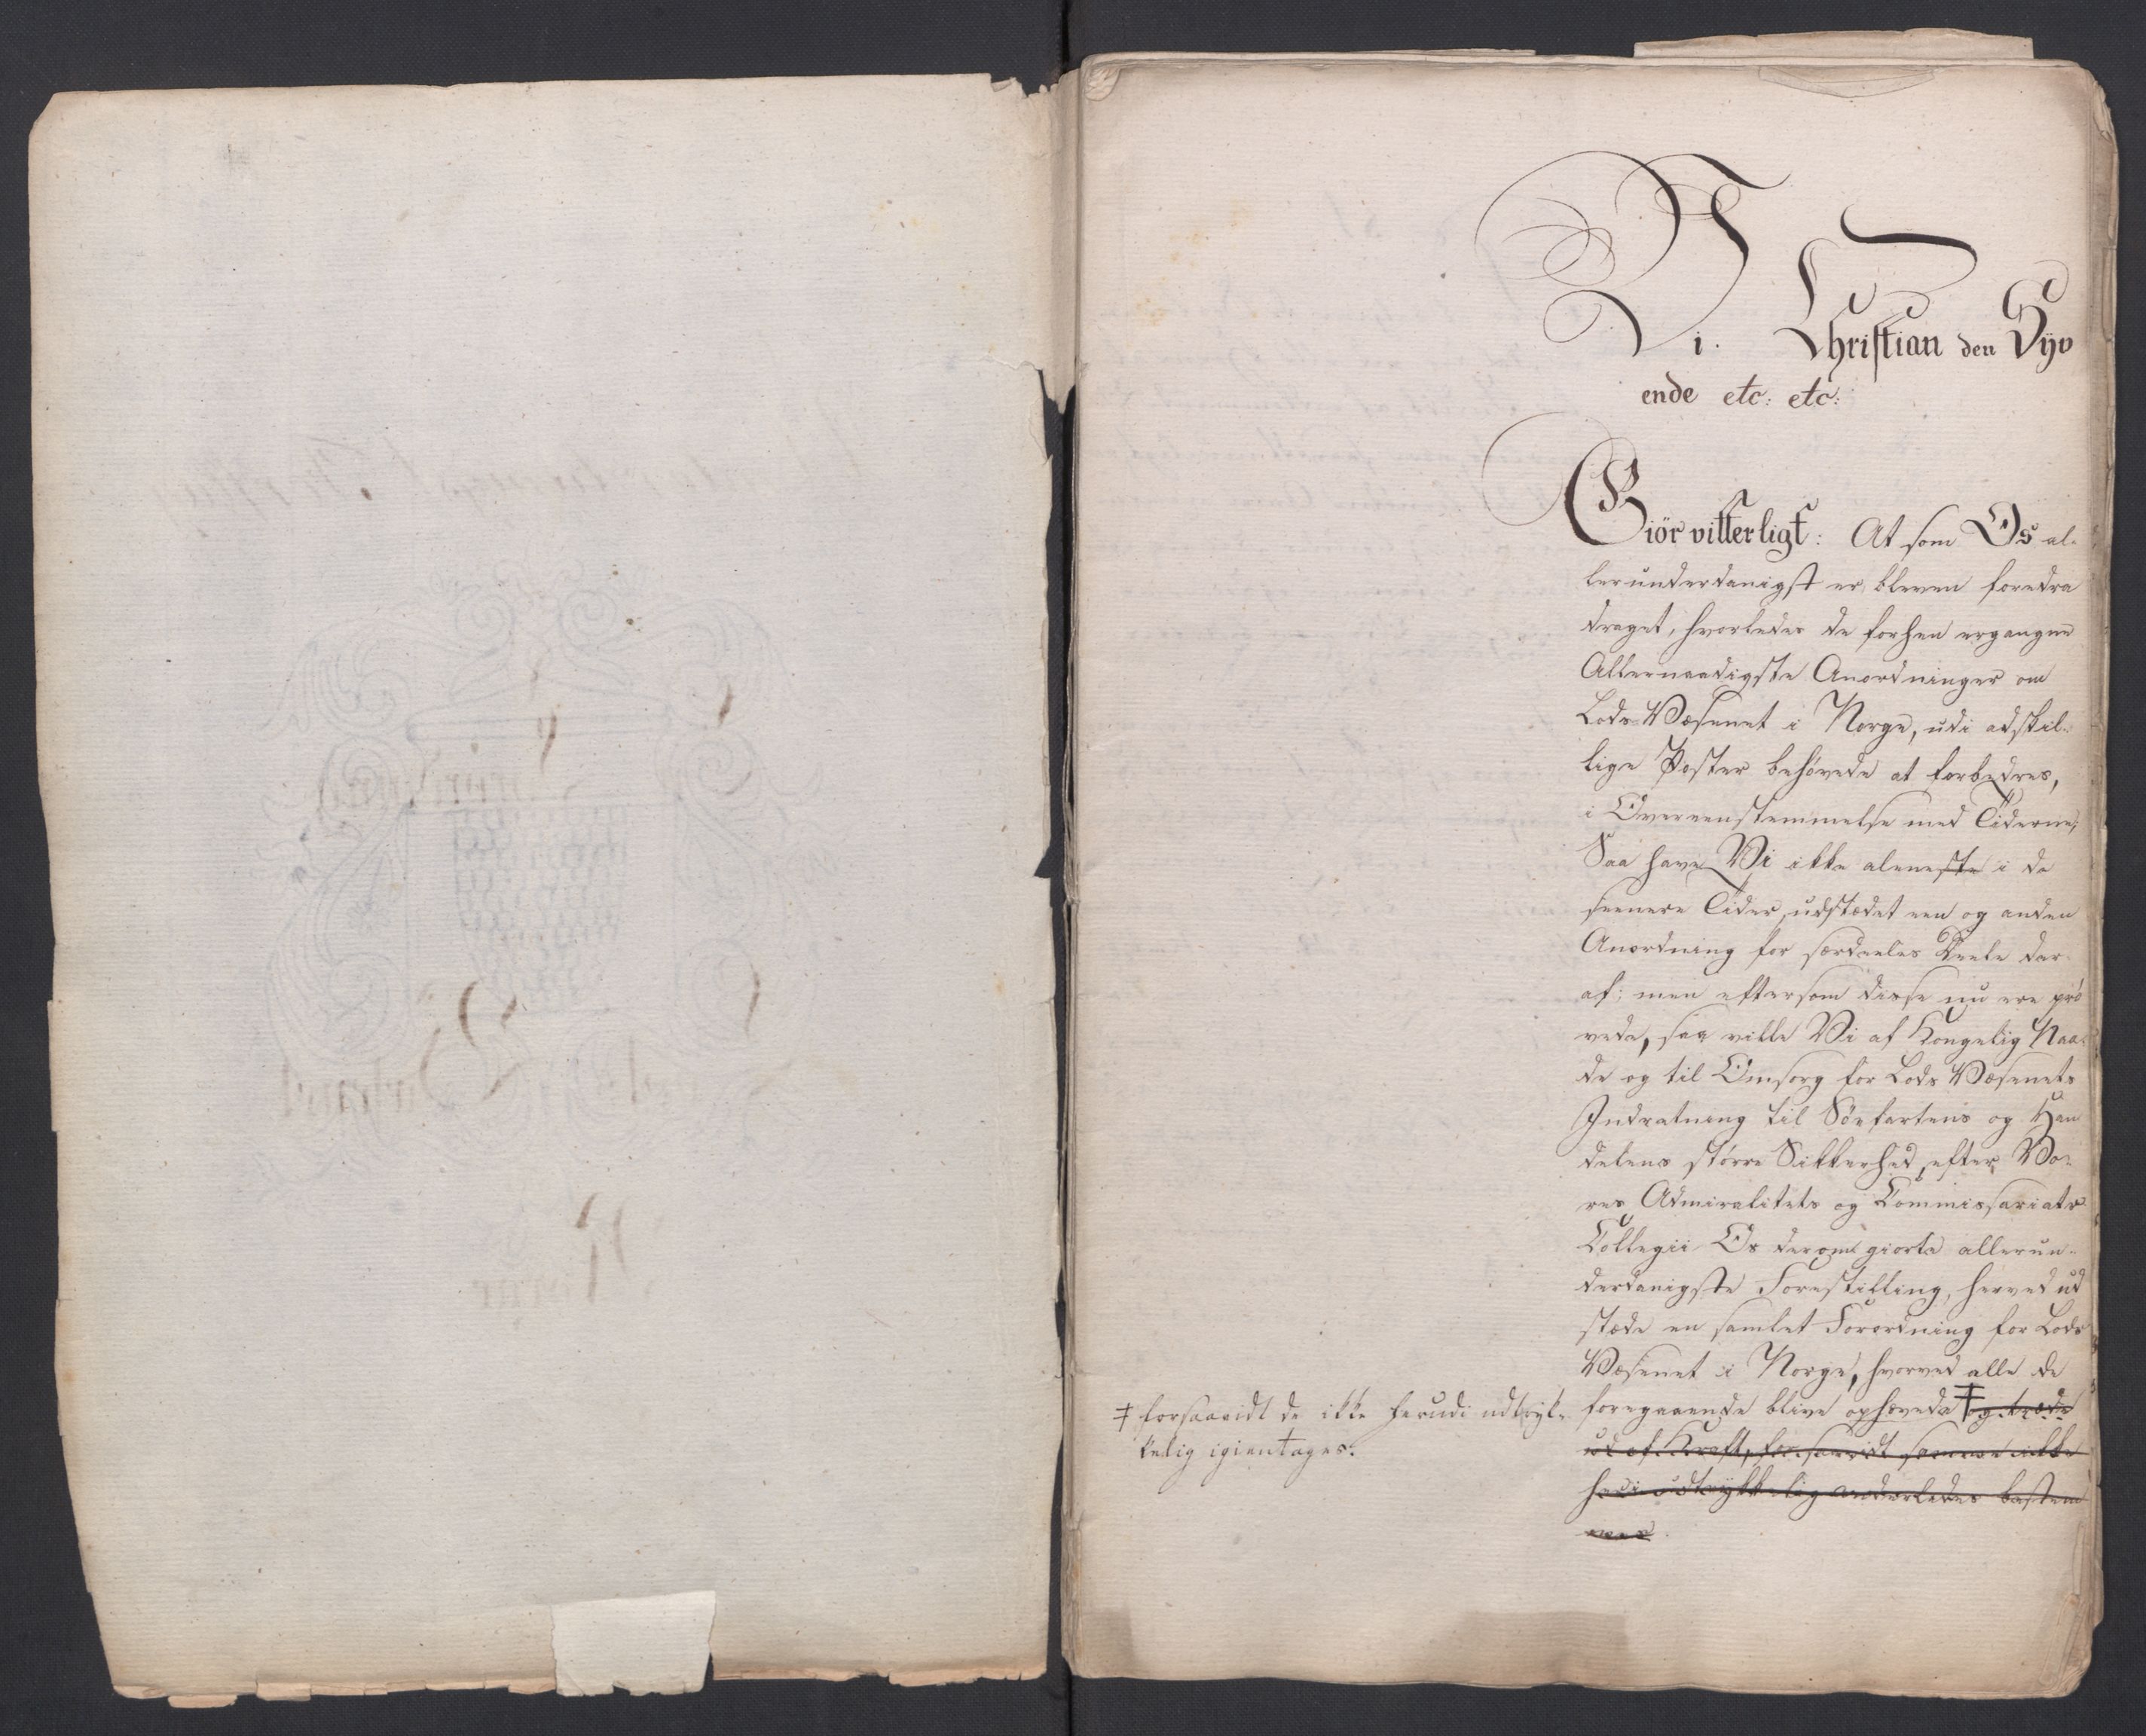 Vi. Christian den Syv
ende etc: etc:
Giör vitterligt: At som Os al-
lerunderdanigst er bleven foredra
draget, hvorledes de forhen ergangne
Allernaadigste Anordninger om
Lods-Væsenet i Norge, udi adskil-
lige Poster behövede at forbedres,
i Overeenstemmelse med Tiderne;
Saa have Vi ikke aleneste i de
seenere Tider, udstædet een og anden
Anordning for særdeeles Deele der-
af; men eftersom disse nu ere prö
vede, saa ville Vi af Kongelig Naa-
de og til Omsorg for Lods Væsenets
Indretning til Söefartens og Han
delens större Sikkerhed, efter Vo-
res Admiralitets og Commissariats
Collegii Os derom giorte allerun-
derdanigste Forestilling, herved ud
stæde en samlet Forordning for Lods
Væsenet i Norge, hvorved alle de
foregaaende blive ophævede ‡ og træde
ud af Kraft, forsaavidt samme ikke
heri udtrykkelig anderledes bestem
mes.
‡ forsaavidt de ikke herudi udtryk-
kelig igientages.